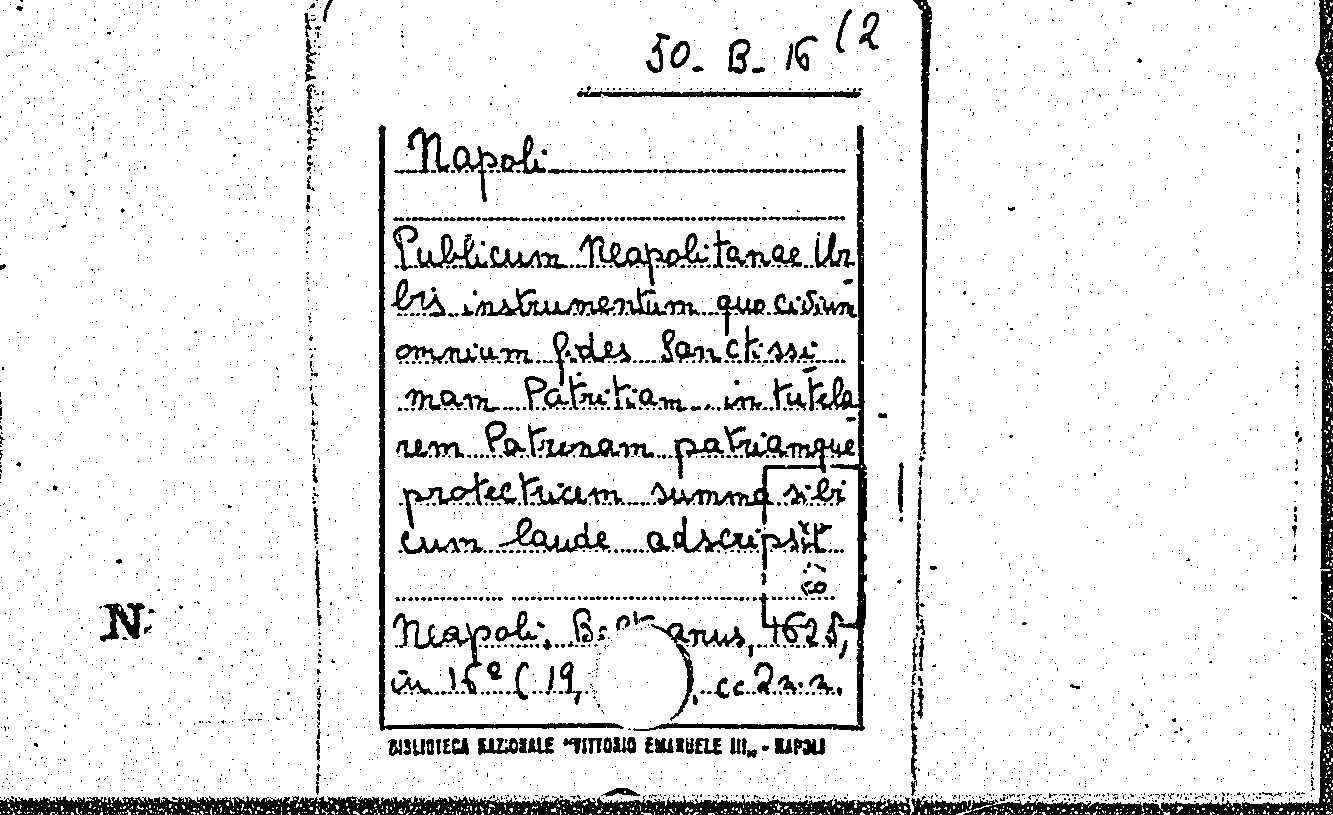 50- B- 16 (2
Napoli
Publicum Neapolitanae Ur
bis instrumentum quo civium
omnium fides Sanctissi
mam Patritiam in tutela
rem Patronam patriamque
protectricem summa sibi
cum laude adscripsit
N.
Neapoli, 1625,
in 16º (19, cc 2 n.n.
BIBLIOTECA NAZIONALE "VITTORIO EMANUELE III" - NAPOLI